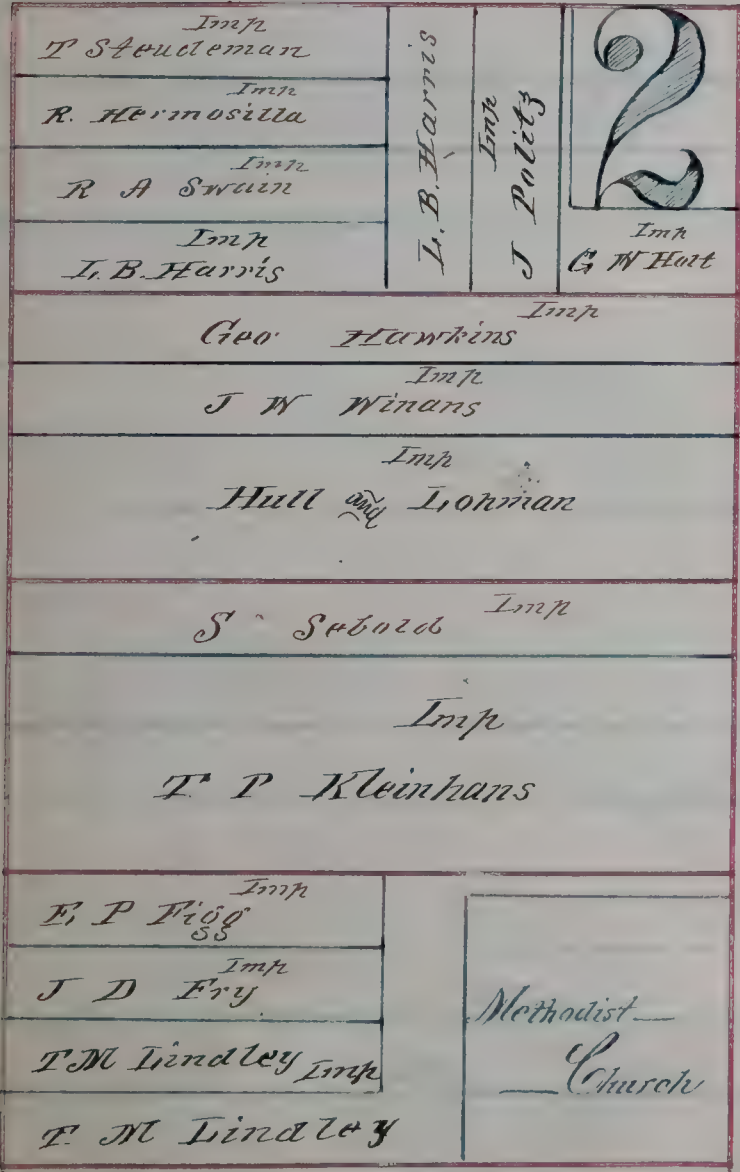 Imp
T Steudeman
Imp
R. Hermosilla
Imp
R A Swain
Imp
L. B. Harris
L. B. Harris
Imp
J Politz
2
Imp
G W Holt
Imp
Geo. Hawkins
Imp
J W Winans
Imp
Hull and Lohman
S Sebold Imp
Imp
T P Kleinhans
Imp
E P Figg
J D Fry Imp
T M Lindley Imp
T M Lindley
Methodist
Church